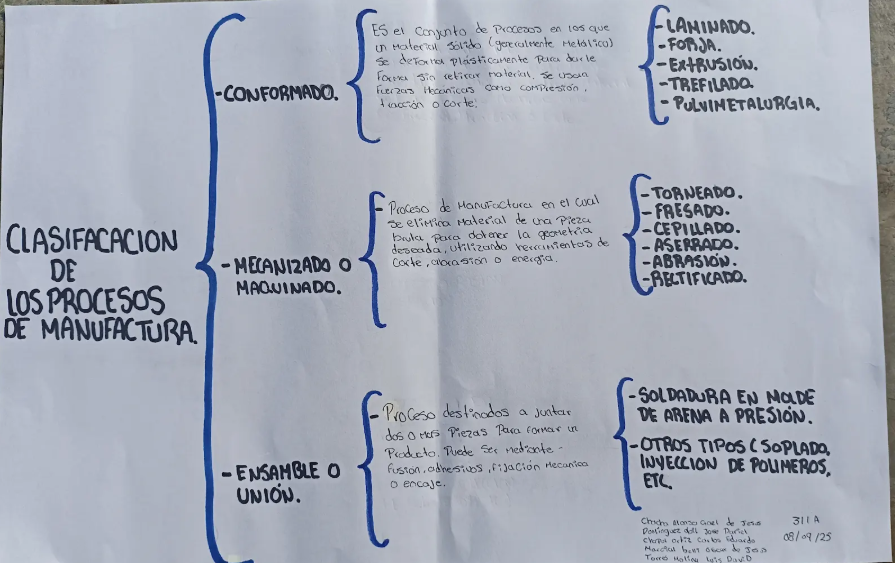 CLASIFACACION
DE
LOS PROCESOS
DE MANUFACTURA.
-CONFORMADO.
ES el Conjunto de Procesos en los que
un Material Sólido (generalmente Metálico)
Se deforma plásticamente Para darle
Forma Sin retirar Material. Se usan
fuerzas Mecánicas Como compresión,
tracción o Corte.
-LAMINADO.
-FORJA.
-EXTRUSIÓN.
-TREFILADO.
-PULVIMETALURGIA.
-MECANIZADO O
MAQUINADO.
- Proceso de Manufactura en el Cual
Se elimina Material de una Pieza
bruta Para obtener la geometria
deseada, utilizando herramientas de
Corte, abrasión o energia.
-TORNEADO.
-FRESADO.
-CEPILLADO.
-ASERRADO.
-ABRASIÓN.
-RECTIFICADO.
-ENSAMBLE O
UNIÓN.
- Proceso destinados a Juntar
dos o Mas Piezas Para formar un
Producto. Puede Ser Mediante -
fusion, adhesivos, fijación Mecanica
o encaje.
-SOLDADURA EN MOLDE
DE ARENA A PRESIÓN.
-OTROS TIPOS (SOPLADO,
INYECCION DE POLIMEROS,
ETC.
Alonso de Jesus
Dominguez Jose Daniel
Ortiz Carlos Eduardo
de Jesus
Luis David
311A
08/09/25